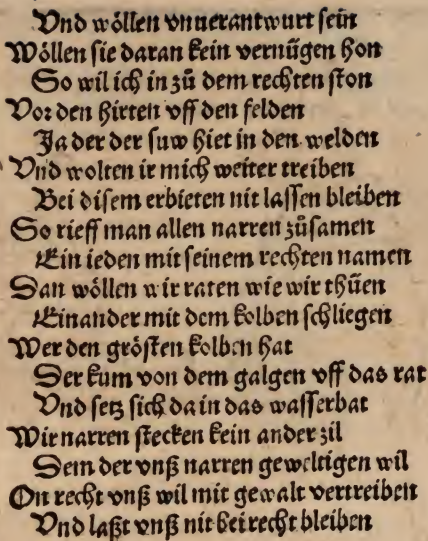 Vnd wöllen vnuerantwurt sein
Wöllen sie daran kein vernügen hon
So wil ich in zů dem rechten ston
Vor den hirten vff den felden
Ja der der suw hiet in den welden
Vnd wolten ir mich weiter treiben
Bei disem erbieten nit lassen bleiben
So rieff man allen narren zůsamen
Ein ieden mit seinem rechten namen
Dan wöllen wir raten wie wir thůen
Einander mit dem kolben schliegen
Wer den grösten kolben hat
Der kum von dem galgen vff das rat
Vnd setz sich da in das wasserbat
Wir narren stecken kein ander zil
Dem der vnß narren geweltigen wil
On recht vnß wil mit gewalt vertreiben
Vnd laßt vnß nit bei recht bleiben